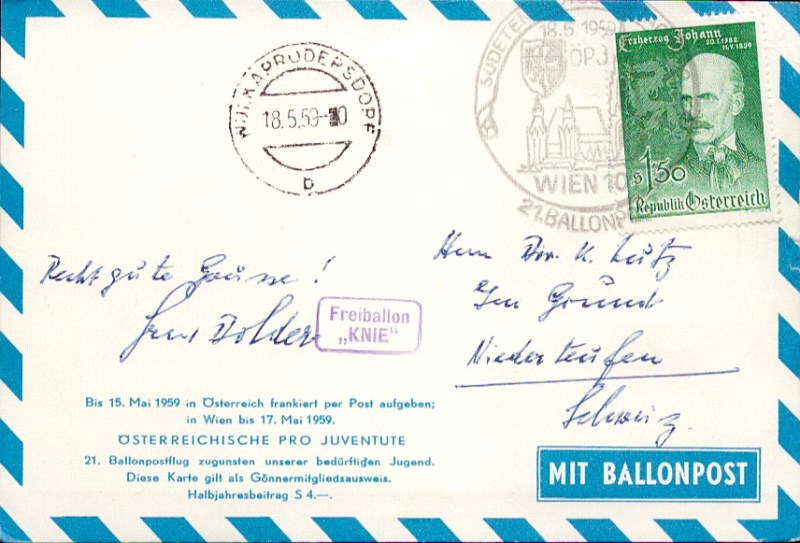 WULKAPRODERSDORF
18.5.59
b
SUDETEN
18.5.1959
ÖPJ
WIEN 10
21. BALLONP
Erzherzog Johann
20.I.1782
11.V.1859
S 1.50
Republik Österreich
Recht gute Grüsse!
Dolder
Freiballon
„KNIE“
Herrn Dir. K. Lutz
Im Grund
Niederteufen
Schweiz.
Bis 15. Mai 1959 in Österreich frankiert per Post aufgeben;
in Wien bis 17. Mai 1959.
ÖSTERREICHISCHE PRO JUVENTUTE
21. Ballonpostflug zugunsten unserer bedürftigen Jugend.
Diese Karte gilt als Gönnermitgliedsausweis.
Halbjahresbeitrag S 4.—.
MIT BALLONPOST